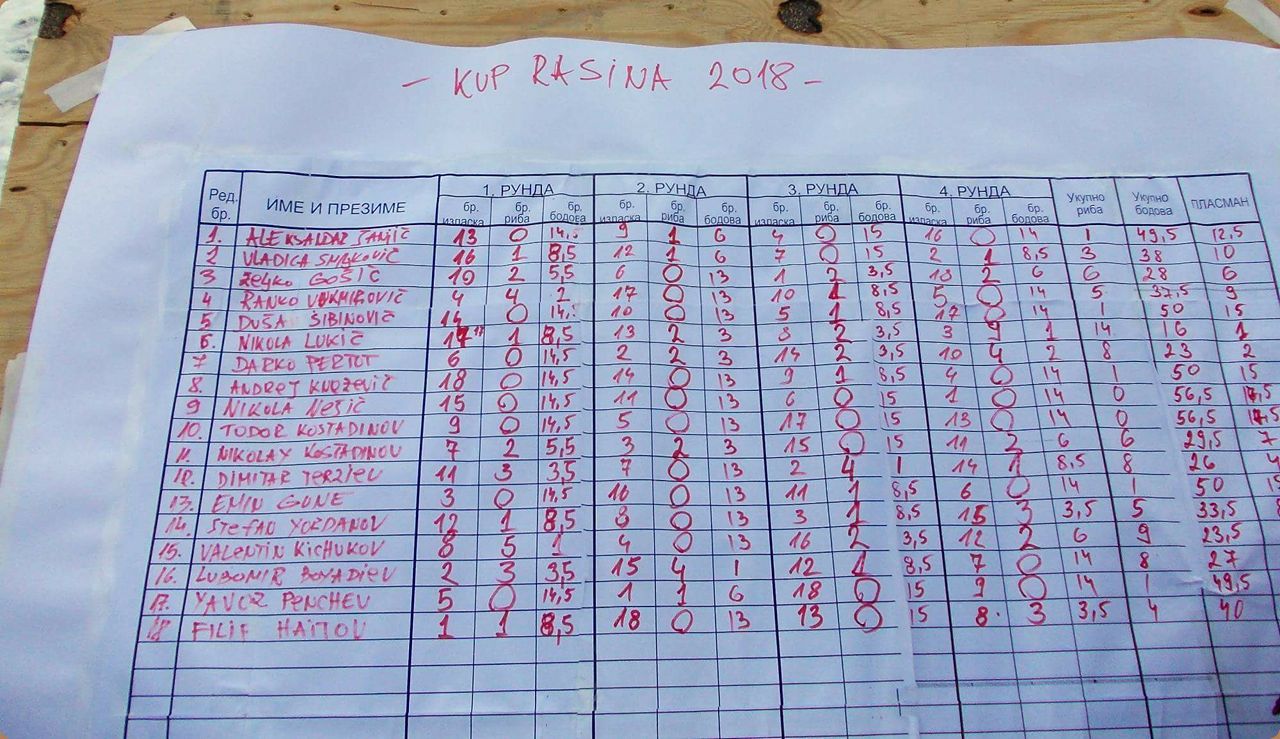 - KUP RASINA 2018 -
Ред. бр. ИМЕ И ПРЕЗИМЕ 1. РУНДА 2. РУНДА 3. РУНДА 4. РУНДА Укупно риба Укупно бодова ПЛАСМАН
бр. изласка бр. риба бр. бодова бр. изласка бр. риба бр. бодова бр. изласка бр. риба бр. бодова бр. изласка бр. риба бр. бодова
1. 13 0 14,5 9 1 6 4 0 15 16 0 14 1 49,5 12,5
2 VLADICA 16 1 8,5 12 1 6 7 0 15 2 1 8,5 3 38 10
3 ŽELJKO GOŠIĆ 19 2 5,5 6 0 13 1 2 3,5 18 2 6 6 28 6
4 RANKO VUKMIROVIČ 4 4 2 17 0 13 10 1 8,5 5 0 14 5 37,5 9
5 DUŠA ŠIBINOVIČ 14 0 14,5 10 0 13 5 1 8,5 17 0 14 1 50 15
6. NIKOLA LUKIČ 17 1 8,5 13 2 3 8 2 3,5 3 9 1 14 16 1
7 DARKO PERTOT 6 0 14,5 2 2 3 14 2 3,5 10 4 2 8 23 2
8. ANDREJ KNEŽEVIČ 18 0 14,5 14 0 13 9 1 8,5 4 0 14 1 50 15
9 NIKOLA NEŠIČ 15 0 14,5 11 0 13 6 0 15 1 0 14 0 56,5 17,5
10. TODOR KOSTADINOV 9 0 14,5 5 0 13 17 0 15 13 0 14 0 56,5 17,5
11. NIKOLAY KOSTADINOV 7 2 5,5 3 2 3 15 0 15 11 2 6 6 29,5 7
12. DIMITAR TERZIEV 11 3 3,5 7 0 13 2 4 1 14 1 8,5 8 26
13. EMIN GUNE 3 0 14,5 16 0 13 11 1 8,5 6 0 14 1 50
14. STEFAN YORDANOV 12 1 8,5 8 0 13 3 1 8,5 15 3 3,5 5 33,5
15. VALENTIN KICHUKOV 8 5 1 4 0 13 16 2 3,5 12 2 6 9 23,5
16. LUBOMIR BOYADIEV 2 3 3,5 15 4 1 12 1 8,5 7 0 14 8 27
17. YAVOR PENCHEV 5 0 14,5 1 1 6 18 0 15 9 0 14 1 49,5
18 FILIP HAITOV 1 1 8,5 18 0 13 13 0 15 8 3 3,5 4 40